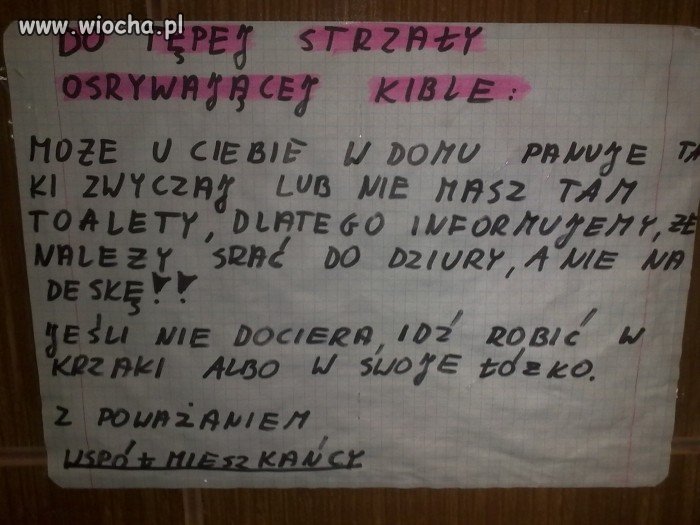 www.wiocha.pl
DO TĘPEJ STRZAŁY
OSRYWAJĄCEJ KIBLE:
MOŻE U CIEBIE W DOMU PANUJE TA
KI ZWYCZAJ LUB NIE MASZ TAM
TOALETY, DLATEGO INFORMUJEMY, ŻE
NALEŻY SRAĆ DO DZIURY, A NIE NA
DESKĘ!!
JEŚLI NIE DOCIERA, IDŹ ROBIĆ W
KRZAKI ALBO W SWOJE ŁÓŻKO.
Z POWAŻANIEM
WSPÓŁMIESZKAŃCY